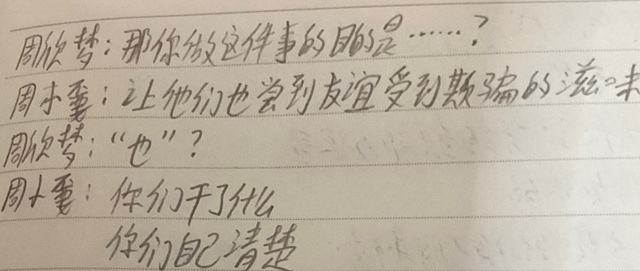 周欣梦：那你做这件事的目的是……？
周木蔓：让他们也尝到友谊受到欺骗的滋味
周欣梦：“也”？
周木蔓：你们干了什么
你们自己清楚